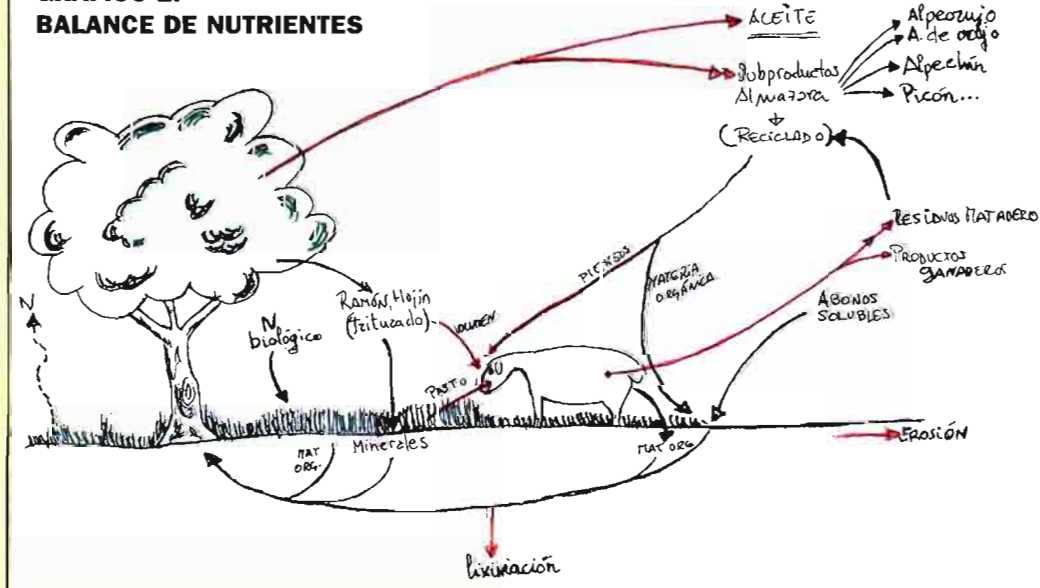 BALANCE DE NUTRIENTES
ACEITE
Subproductos
Almazara
(RECICLADO)
Alpeorujo
A. de orujo
Alpechín
Picón...
RESIDUOS MATADERO
PRODUCTOS
GANADEROS
ABONOS
SOLUBLES
PIENSOS
MATERIA
ORGÁNICA
N
N
biológico
Ramón, Hojín
(triturado)
PASTO
MAT
ORG.
Minerales
MAT ORG
EROSIÓN
lixiviación